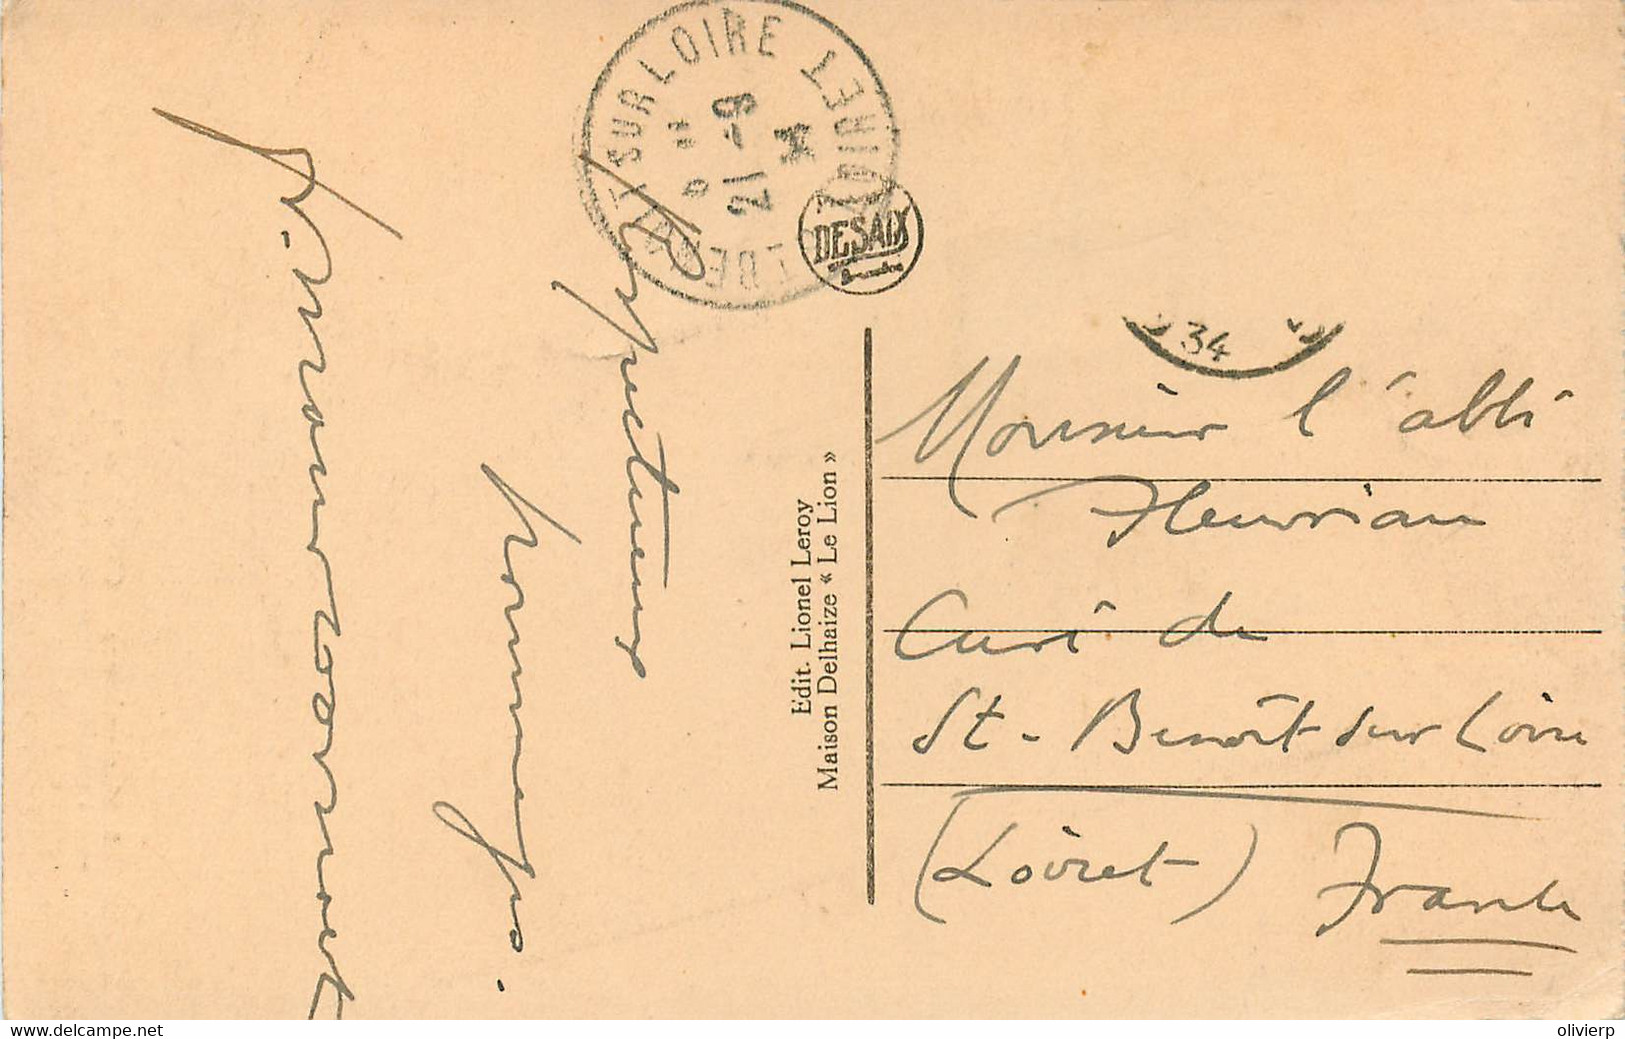 SUR LOIRE LOIRET
21 -9
34
DESAIX
34
Respectueux
hommages.
Edit. Lionel Leroy
Maison Delhaize « Le Lion »
Monsieur l'abbé
Fleuriau
Curé de
St-Benoît sur Loire
(Loiret) France
www.delcampe.net
olivierp